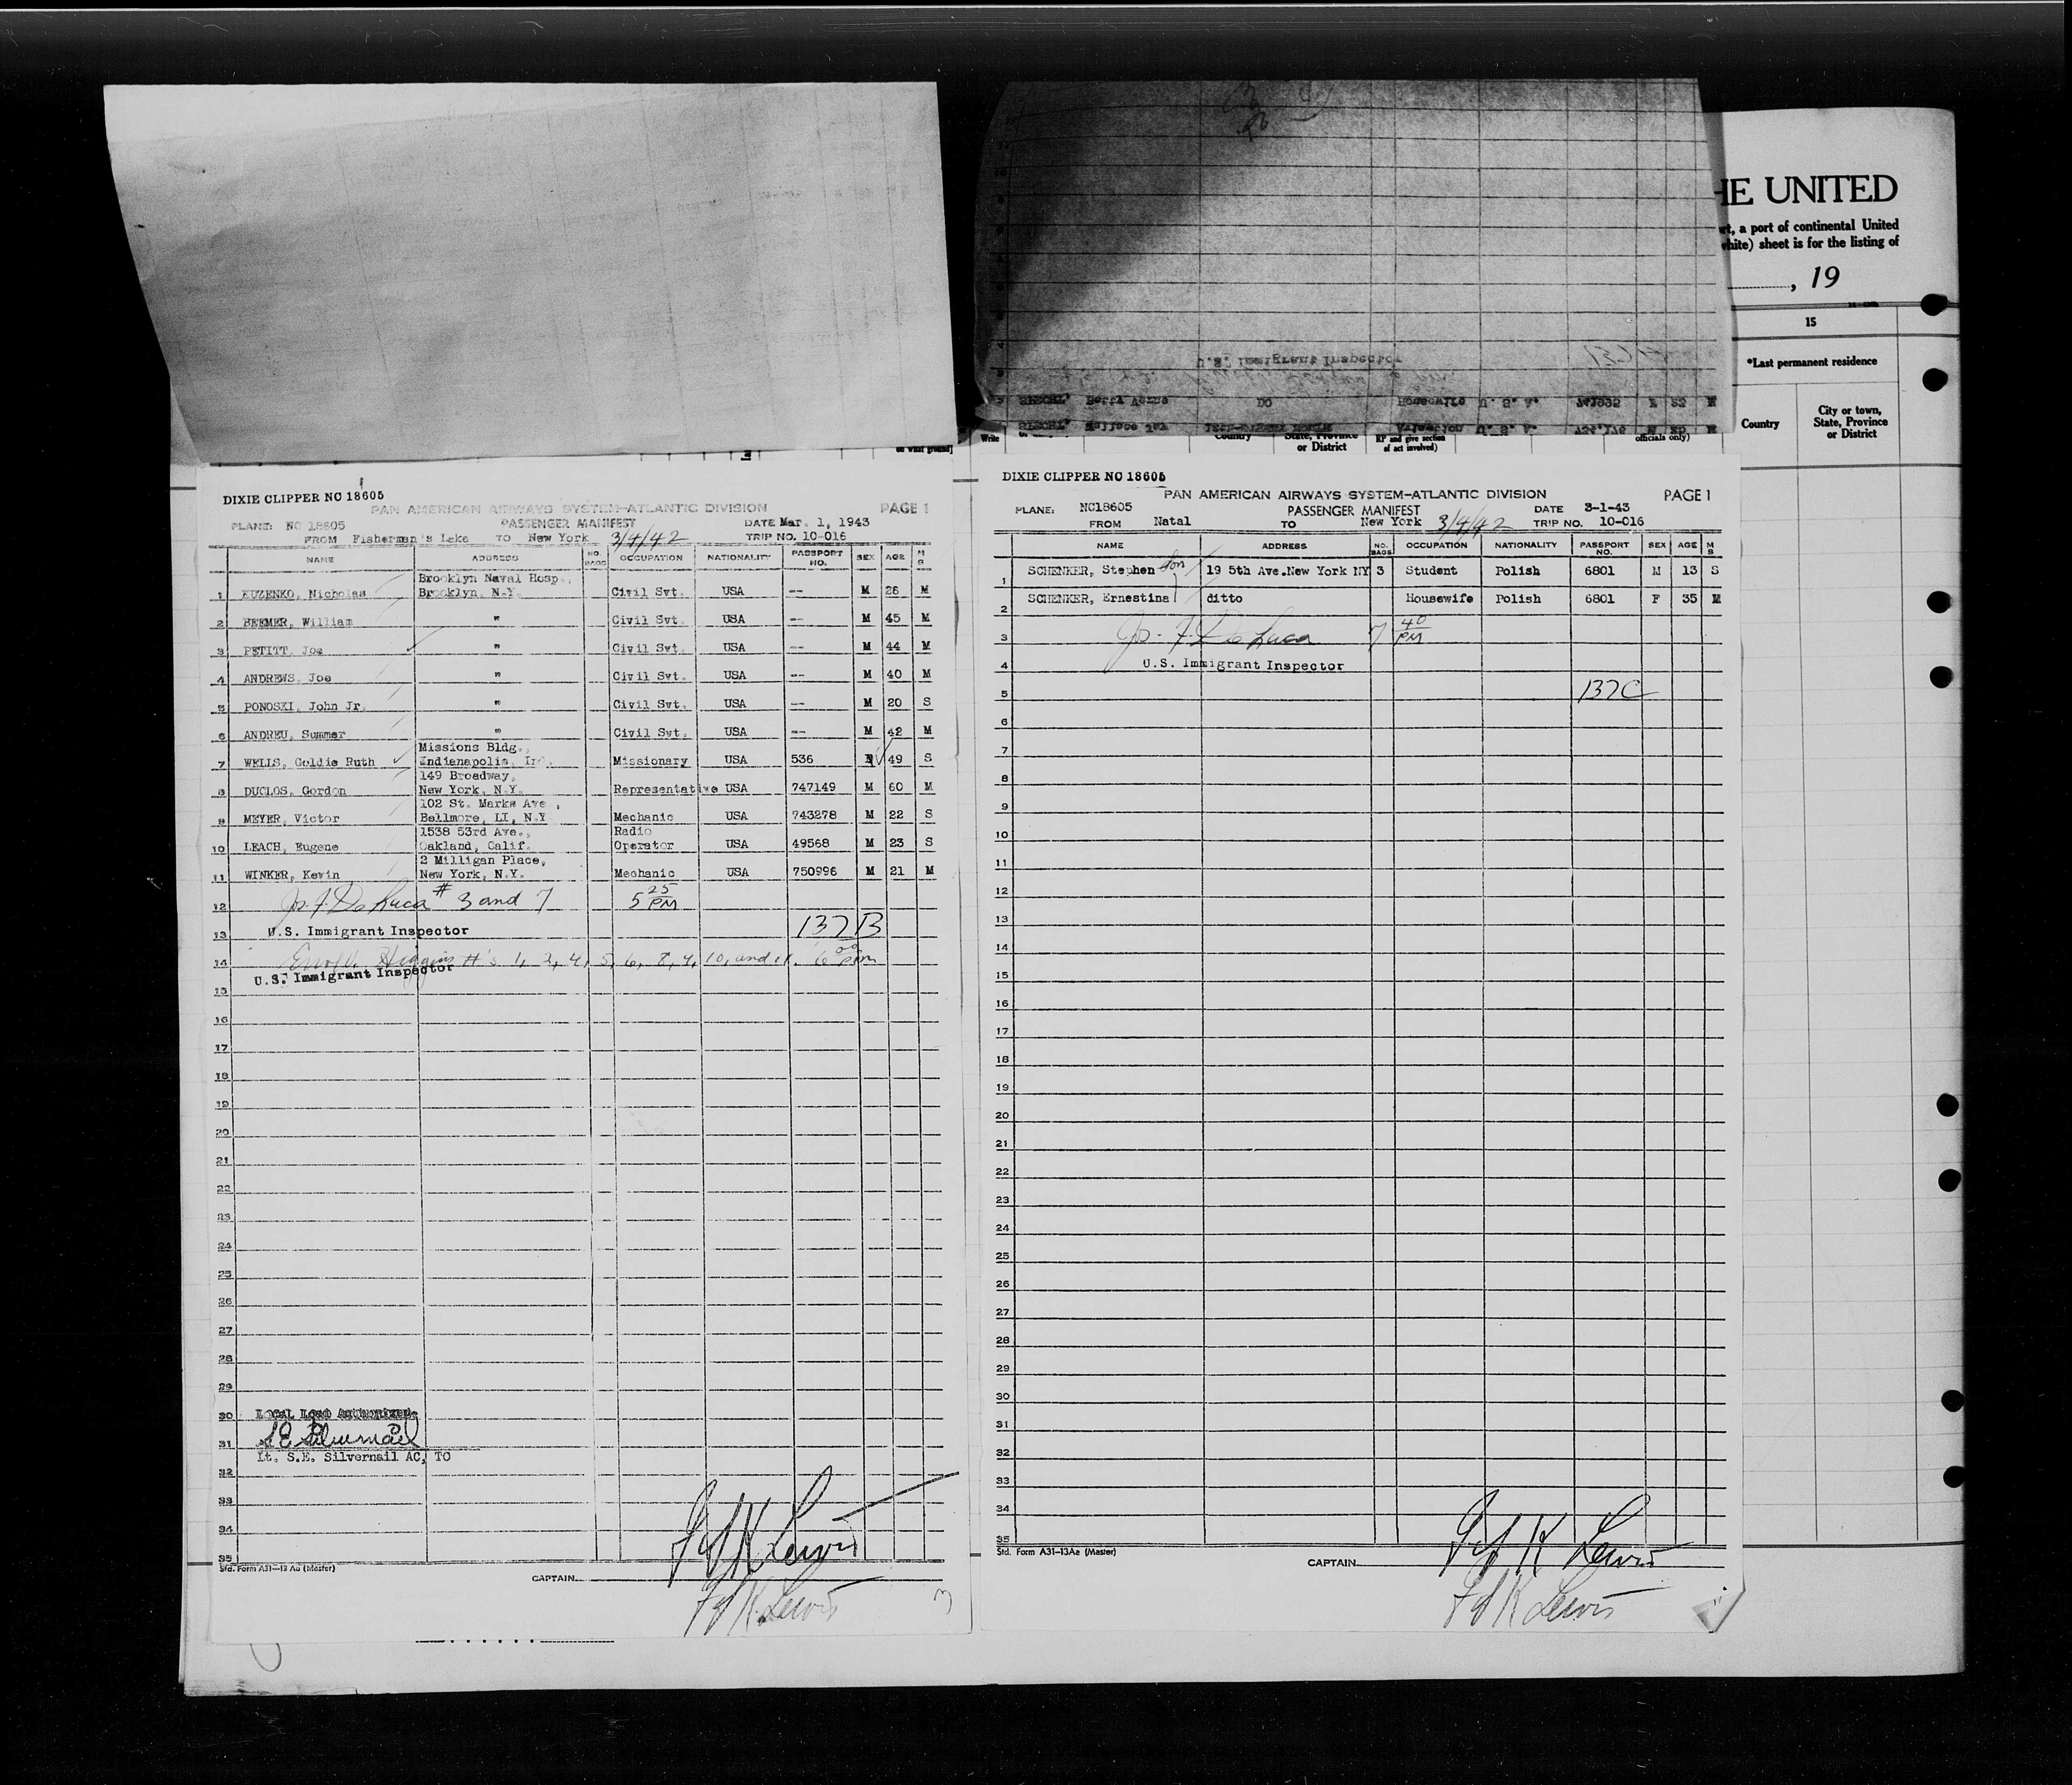 HE UNITED
rt, a port of continental United
white) sheet is for the listing of
, 19
15
*Last permanent residence
Country
City or town, State, Province or District
U.S. Immigrant Inspector
SPECHT, Betty Verne DO Housewife U. S. A. F
SPECHT, Wallace Jay U. S. A. M
Write
Country
State, Province or District
RP and give section of act involved)
officials only)
on what ground]
DIXIE CLIPPER NC 18605
PAN AMERICAN AIRWAYS SYSTEM—ATLANTIC DIVISION PAGE 1
PLANE: NC 18605 PASSENGER MANIFEST DATE Mar. 1, 1943
FROM Fisherman's Lake TO New York 3/4/42 TRIP NO. 10-016
NAME ADDRESS NO. BAGS OCCUPATION NATIONALITY PASSPORT NO. SEX AGE M S
Brooklyn Naval Hosp.,
1 KUZENKO, Nicholas Brooklyn, N.Y. Civil Svt. USA -- M 26 M
2 BEEMER, William " Civil Svt. USA -- M 45 M
3 PETITT, Joe " Civil Svt. USA -- M 44 M
4 ANDREWS, Joe " Civil Svt. USA -- M 40 M
5 PONOSKI, John Jr. " Civil Svt. USA -- M 20 S
6 ANDREU, Summer " Civil Svt. USA -- M 42 M
Missions Bldg.,
7 WELLS, Goldie Ruth Indianapolis, Ind. Missionary USA 536 F 49 S
149 Broadway,
8 DUCLOS, Gordon New York, N.Y. Representative USA 747149 M 60 M
102 St. Marks Ave.,
9 MEYER, Victor Bellmore, LI, N.Y Mechanic USA 743278 M 22 S
1538 53rd Ave., Radio
10 LEACH, Eugene Oakland, Calif. Operator USA 49568 M 23 S
2 Milligan Place,
11 WINKER, Kevin New York, N.Y. Mechanic USA 750996 M 21 M
12 Jos. F. De Luca # 3 and 7 5 25 PM
13 U.S. Immigrant Inspector 137B
14 Higgins #'s 1, 2, 4, 5, 6, 8, 9, 10, and 11. 6 00 pm
U.S. Immigrant Inspector
15
16
17
18
19
20
21
22
23
24
25
26
27
28
29
30 Local Load Authorized
31 S E Silvernail
Lt. S.E. Silvernail AC, TO
32
33
34
35
Std. Form A31—13 Aa (Master)
CAPTAIN
K Lewis
K Lewis
3
DIXIE CLIPPER NC 18605
PAN AMERICAN AIRWAYS SYSTEM—ATLANTIC DIVISION PAGE 1
PLANE: NC18605 PASSENGER MANIFEST DATE 3-1-43
FROM Natal TO New York 3/4/42 TRIP NO. 10-016
NAME ADDRESS NO. BAGS OCCUPATION NATIONALITY PASSPORT NO. SEX AGE M S
1 SCHENKER, Stephen son 19 5th Ave.New York NY 3 Student Polish 6801 M 13 S
2 SCHENKER, Ernestina ditto Housewife Polish 6801 F 35 M
3 Jos. F. De Luca 7 40 PM
4 U.S. Immigrant Inspector
5 137C
6
7
8
9
10
11
12
13
14
15
16
17
18
19
20
21
22
23
24
25
26
27
28
29
30
31
32
33
34
35
Std. Form A31—13Aa (Master)
CAPTAIN
K Lewis
K Lewis